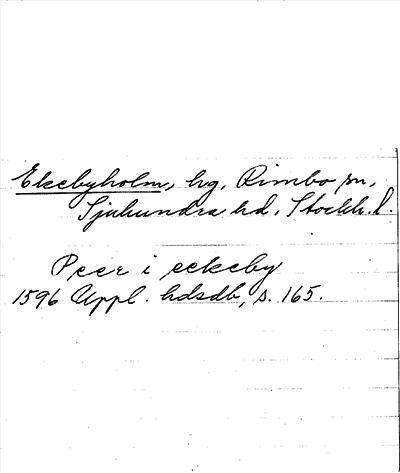 Ekebyholm, hg, Rimbo sn,
Sjuhundra hd, Stockh. l.
Peer i eekeby
1596 Uppl. hdsdb, s. 165.